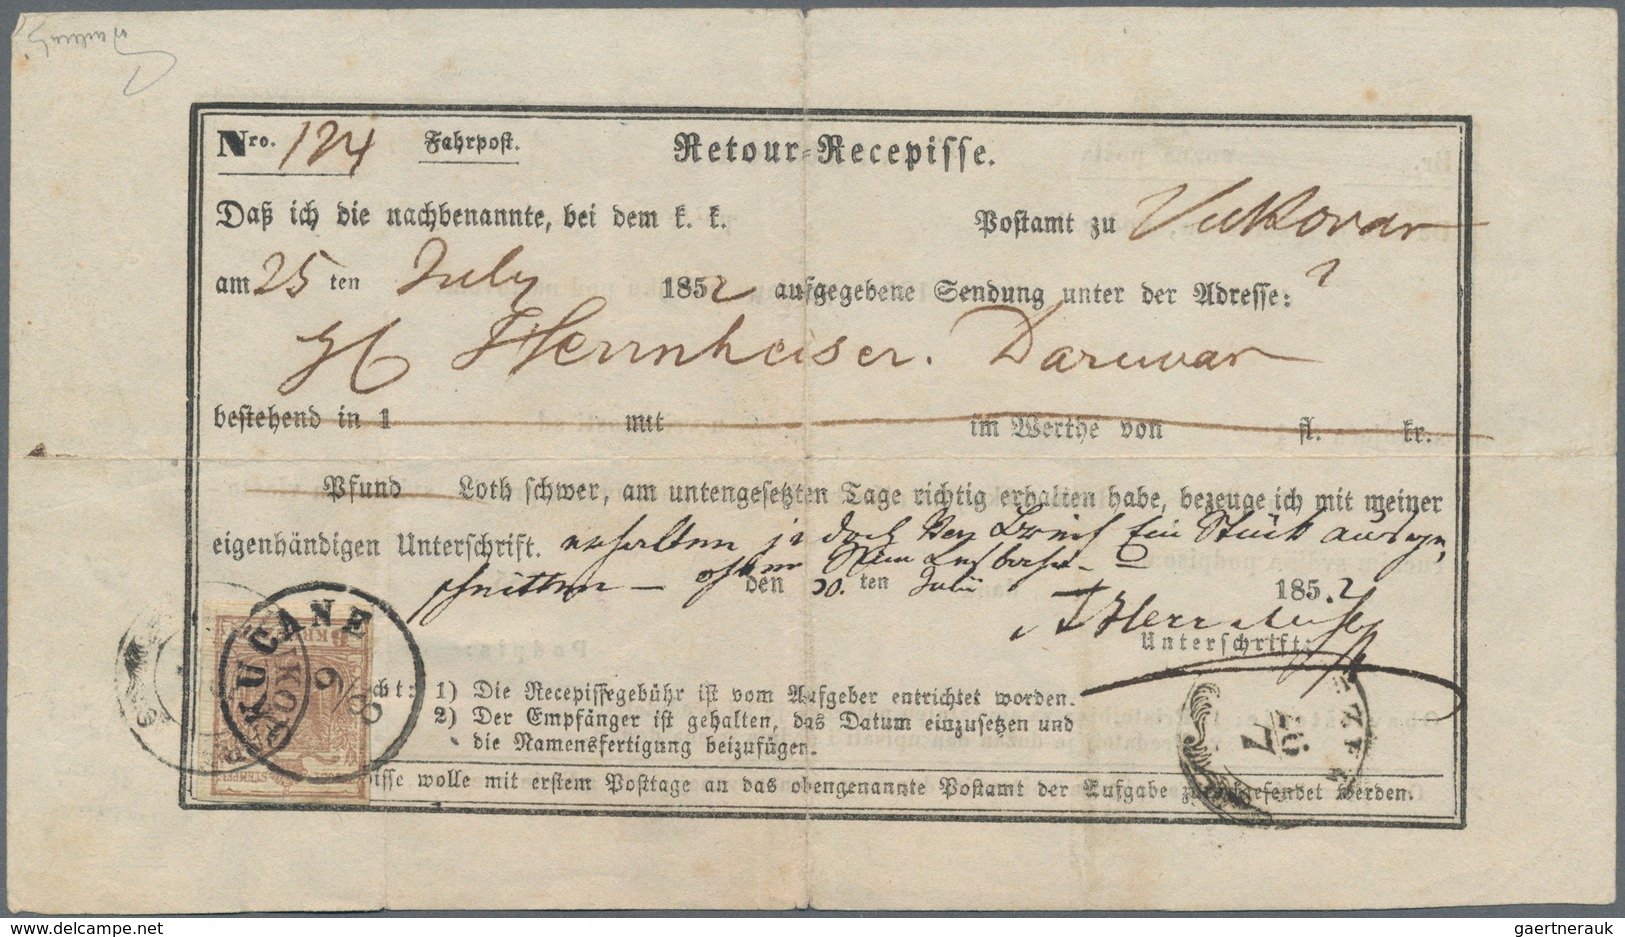 Nro. 124 Fahrpost. Retour-Recepisse.
Daß ich die nachbenannte, bei dem k. k. Postamt zu Vukovar
am 25 ten July 1852 aufgegebene Sendung unter der Adresse:
H Herrnheiser. Daruvar
bestehend in 1 mit im Werthe von fl. kr.
Pfund Loth schwer, am untengesetzten Tage richtig erhalten habe, bezeuge ich mit meiner
eigenhändigen Unterschrift. erhalten jedoch den Brief Ein Stück ausge-
schnitten –
den 30. ten Julii 1852
Unterschrift:
cht: 1) Die Recepissegebühr ist vom Aufgeber entrichtet worden.
2) Der Empfänger ist gehalten, das Datum einzusetzen und
die Namensfertigung beizufügen.
isse wolle mit erstem Posttage an das obengenannte Postamt der Aufgabe zurückgesendet werden.
KUCANE
9/8
gaertnerauk